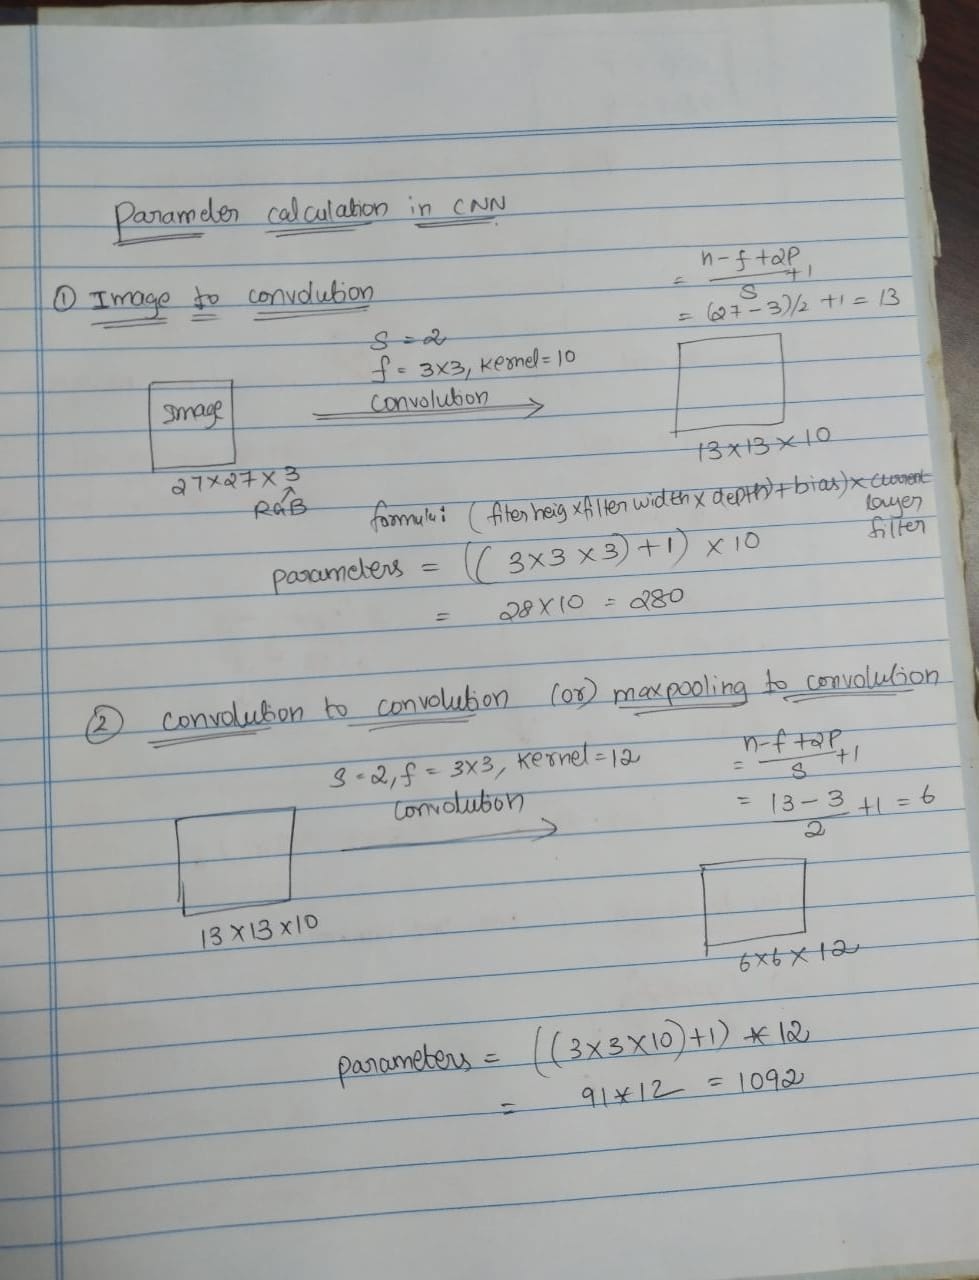 Parameter calculation in CNN
① Image to convolution
= n-f+2P/S +1
= (27-3)/2 +1 = 13
S = 2
f = 3x3, kernel = 10
convolution
Image
27x27x3
RGB
13x13x10
formula: (filter heig x filter width x depth) + bias) x current layer filter
parameters = ((3x3x3)+1) x 10
= 28x10 = 280
② convolution to convolution (or) maxpooling to convolution
S = 2, f = 3x3, kernel = 12
convolution
= n-f+2P/S +1
= 13-3/2 +1 = 6
13x13x10
6x6x12
parameters = ((3x3x10)+1) * 12
= 91*12 = 1092